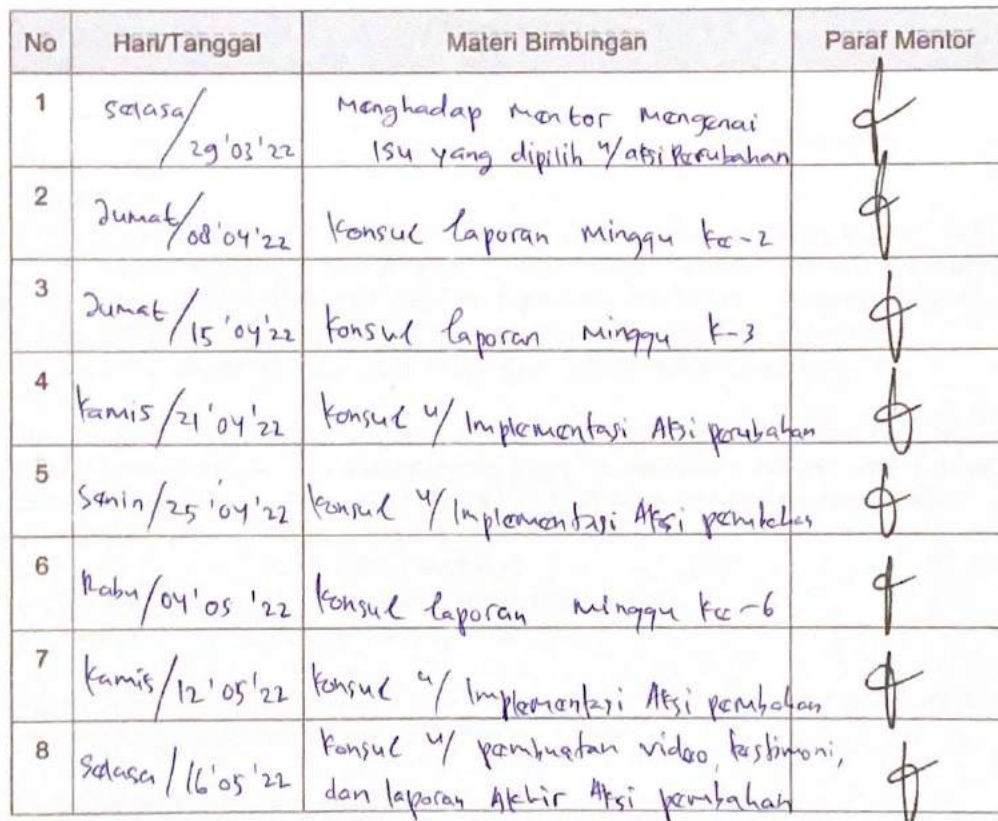 No Hari/Tanggal Materi Bimbingan Paraf Mentor
1 Selasa/ Menghadap mentor mengenai
29'03'22 Isu yang dipilih u/ aksi Perubahan
2 Jumat/08'04'22 Konsul laporan minggu ke-2
3 Jumat/15'04'22 Konsul laporan minggu k-3
4 Kamis/21'04'22 Konsul u/ Implementasi Aksi perubahan
5 Senin/25'04'22 Konsul u/ Implementasi Aksi perubahan
6 Rabu/04'05'22 Konsul laporan minggu ke-6
7 Kamis/12'05'22 Konsul u/ Implementasi Aksi perubahan
8 Selasa/16'05'22 Konsul u/ pembuatan video, testimoni,
dan laporan Akhir Aksi perubahan